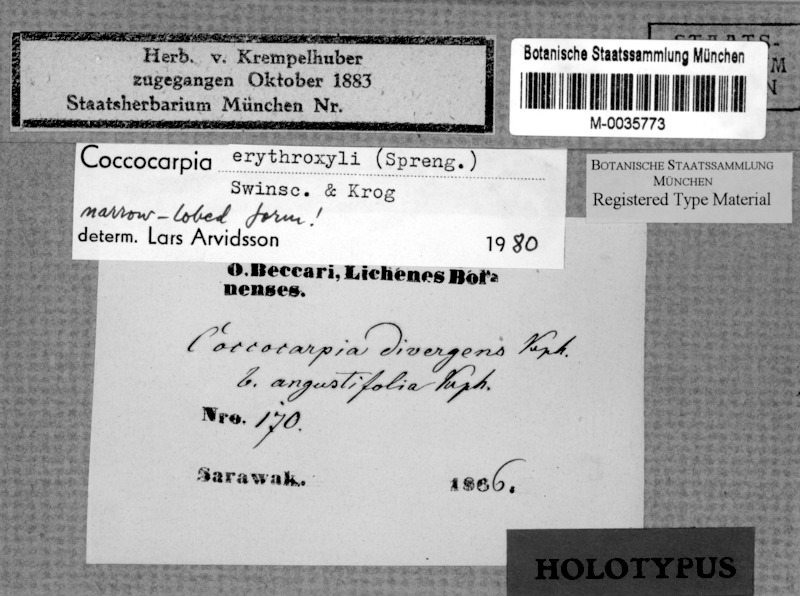 Herb. v. Krempelhuber
zugegangen Oktober 1883
Staatsherbarium München Nr.
Botanische Staatssammlung München
M-0035773
BOTANISCHE STAATSSAMMLUNG
MÜNCHEN
Registered Type Material
Coccocarpia erythroxyli (Spreng.)
Swinsc. & Krog
narrow-lobed form!
determ. Lars Arvidsson 1980
O. Beccari, Lichenes Bor
nenses.
Coccocarpia divergens Kph.
b. angustifolia Kph.
Nro. 170.
Sarawak. 1866.
HOLOTYPUS